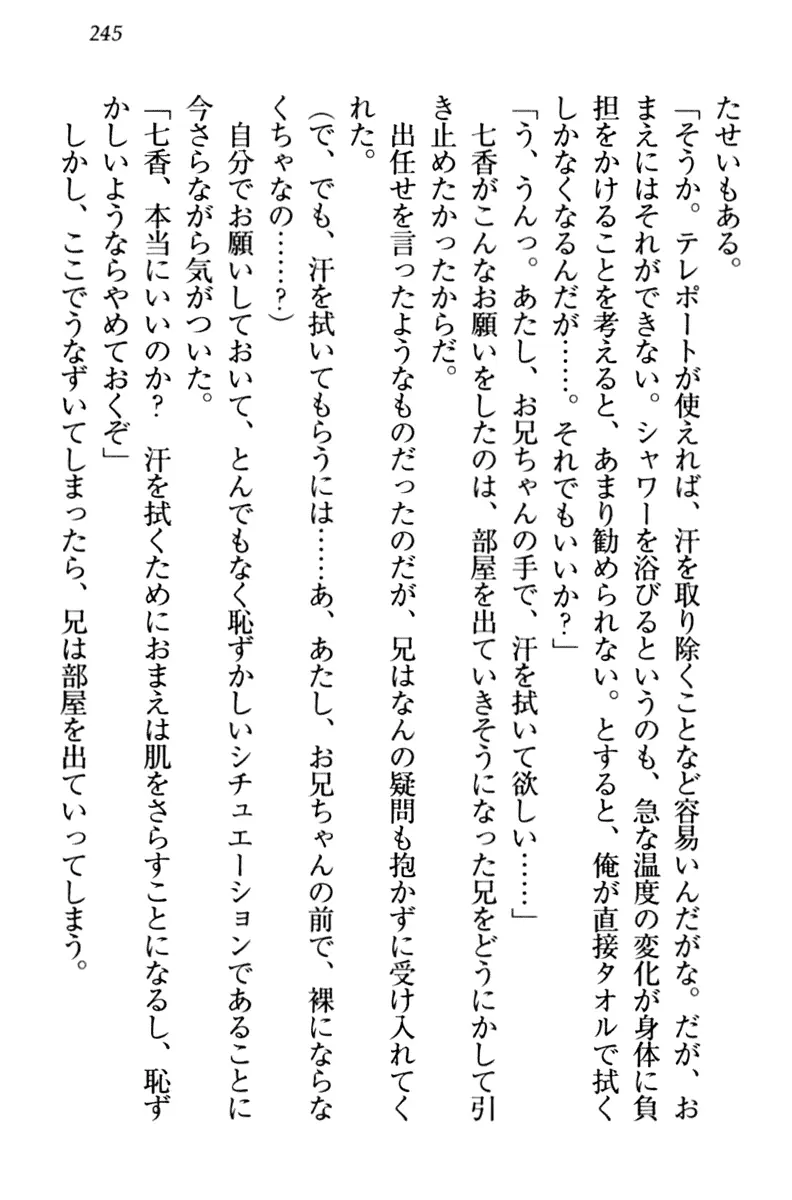 245
たせいもある。
「そうか。テレポートが使えれば、汗を取り除くことなど容易いんだがな。だが、お
まえにはそれができない。シャワーを浴びるというのも、急な温度の変化が身体に負
担をかけることを考えると、あまり勧められない。とすると、俺が直接タオルで拭く
しかなくなるんだが……。それでもいいか？」
「う、うんっ。あたし、お兄ちゃんの手で、汗を拭いて欲しい……」
七香がこんなお願いをしたのは、部屋を出ていきそうになった兄をどうにかして引
き止めたかったからだ。
出任せを言ったようなものだったのだが、兄はなんの疑問も抱かずに受け入れてく
れた。
（で、でも、汗を拭いてもらうには……あ、あたし、お兄ちゃんの前で、裸にならな
くちゃなの……？）
自分でお願いしておいて、とんでもなく恥ずかしいシチュエーションであることに
今さらながら気がついた。
「七香、本当にいいのか？　汗を拭くためにおまえは肌をさらすことになるし、恥ず
かしいようならやめておくぞ」
しかし、ここでうなずいてしまったら、兄は部屋を出ていってしまう。